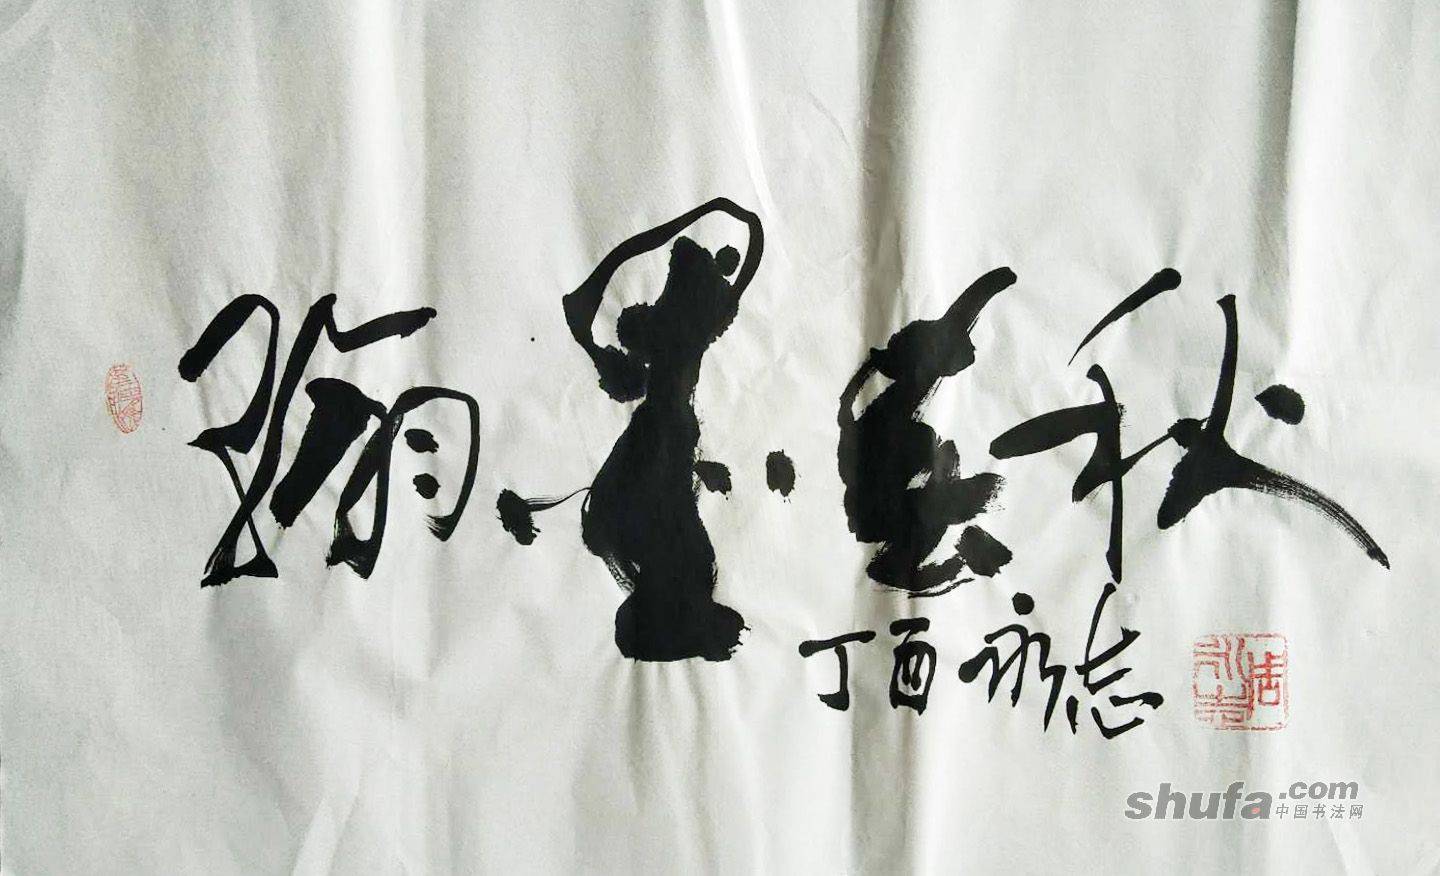 翰墨春秋
丁酉 永志
周永志
shufa.com
中国书法网